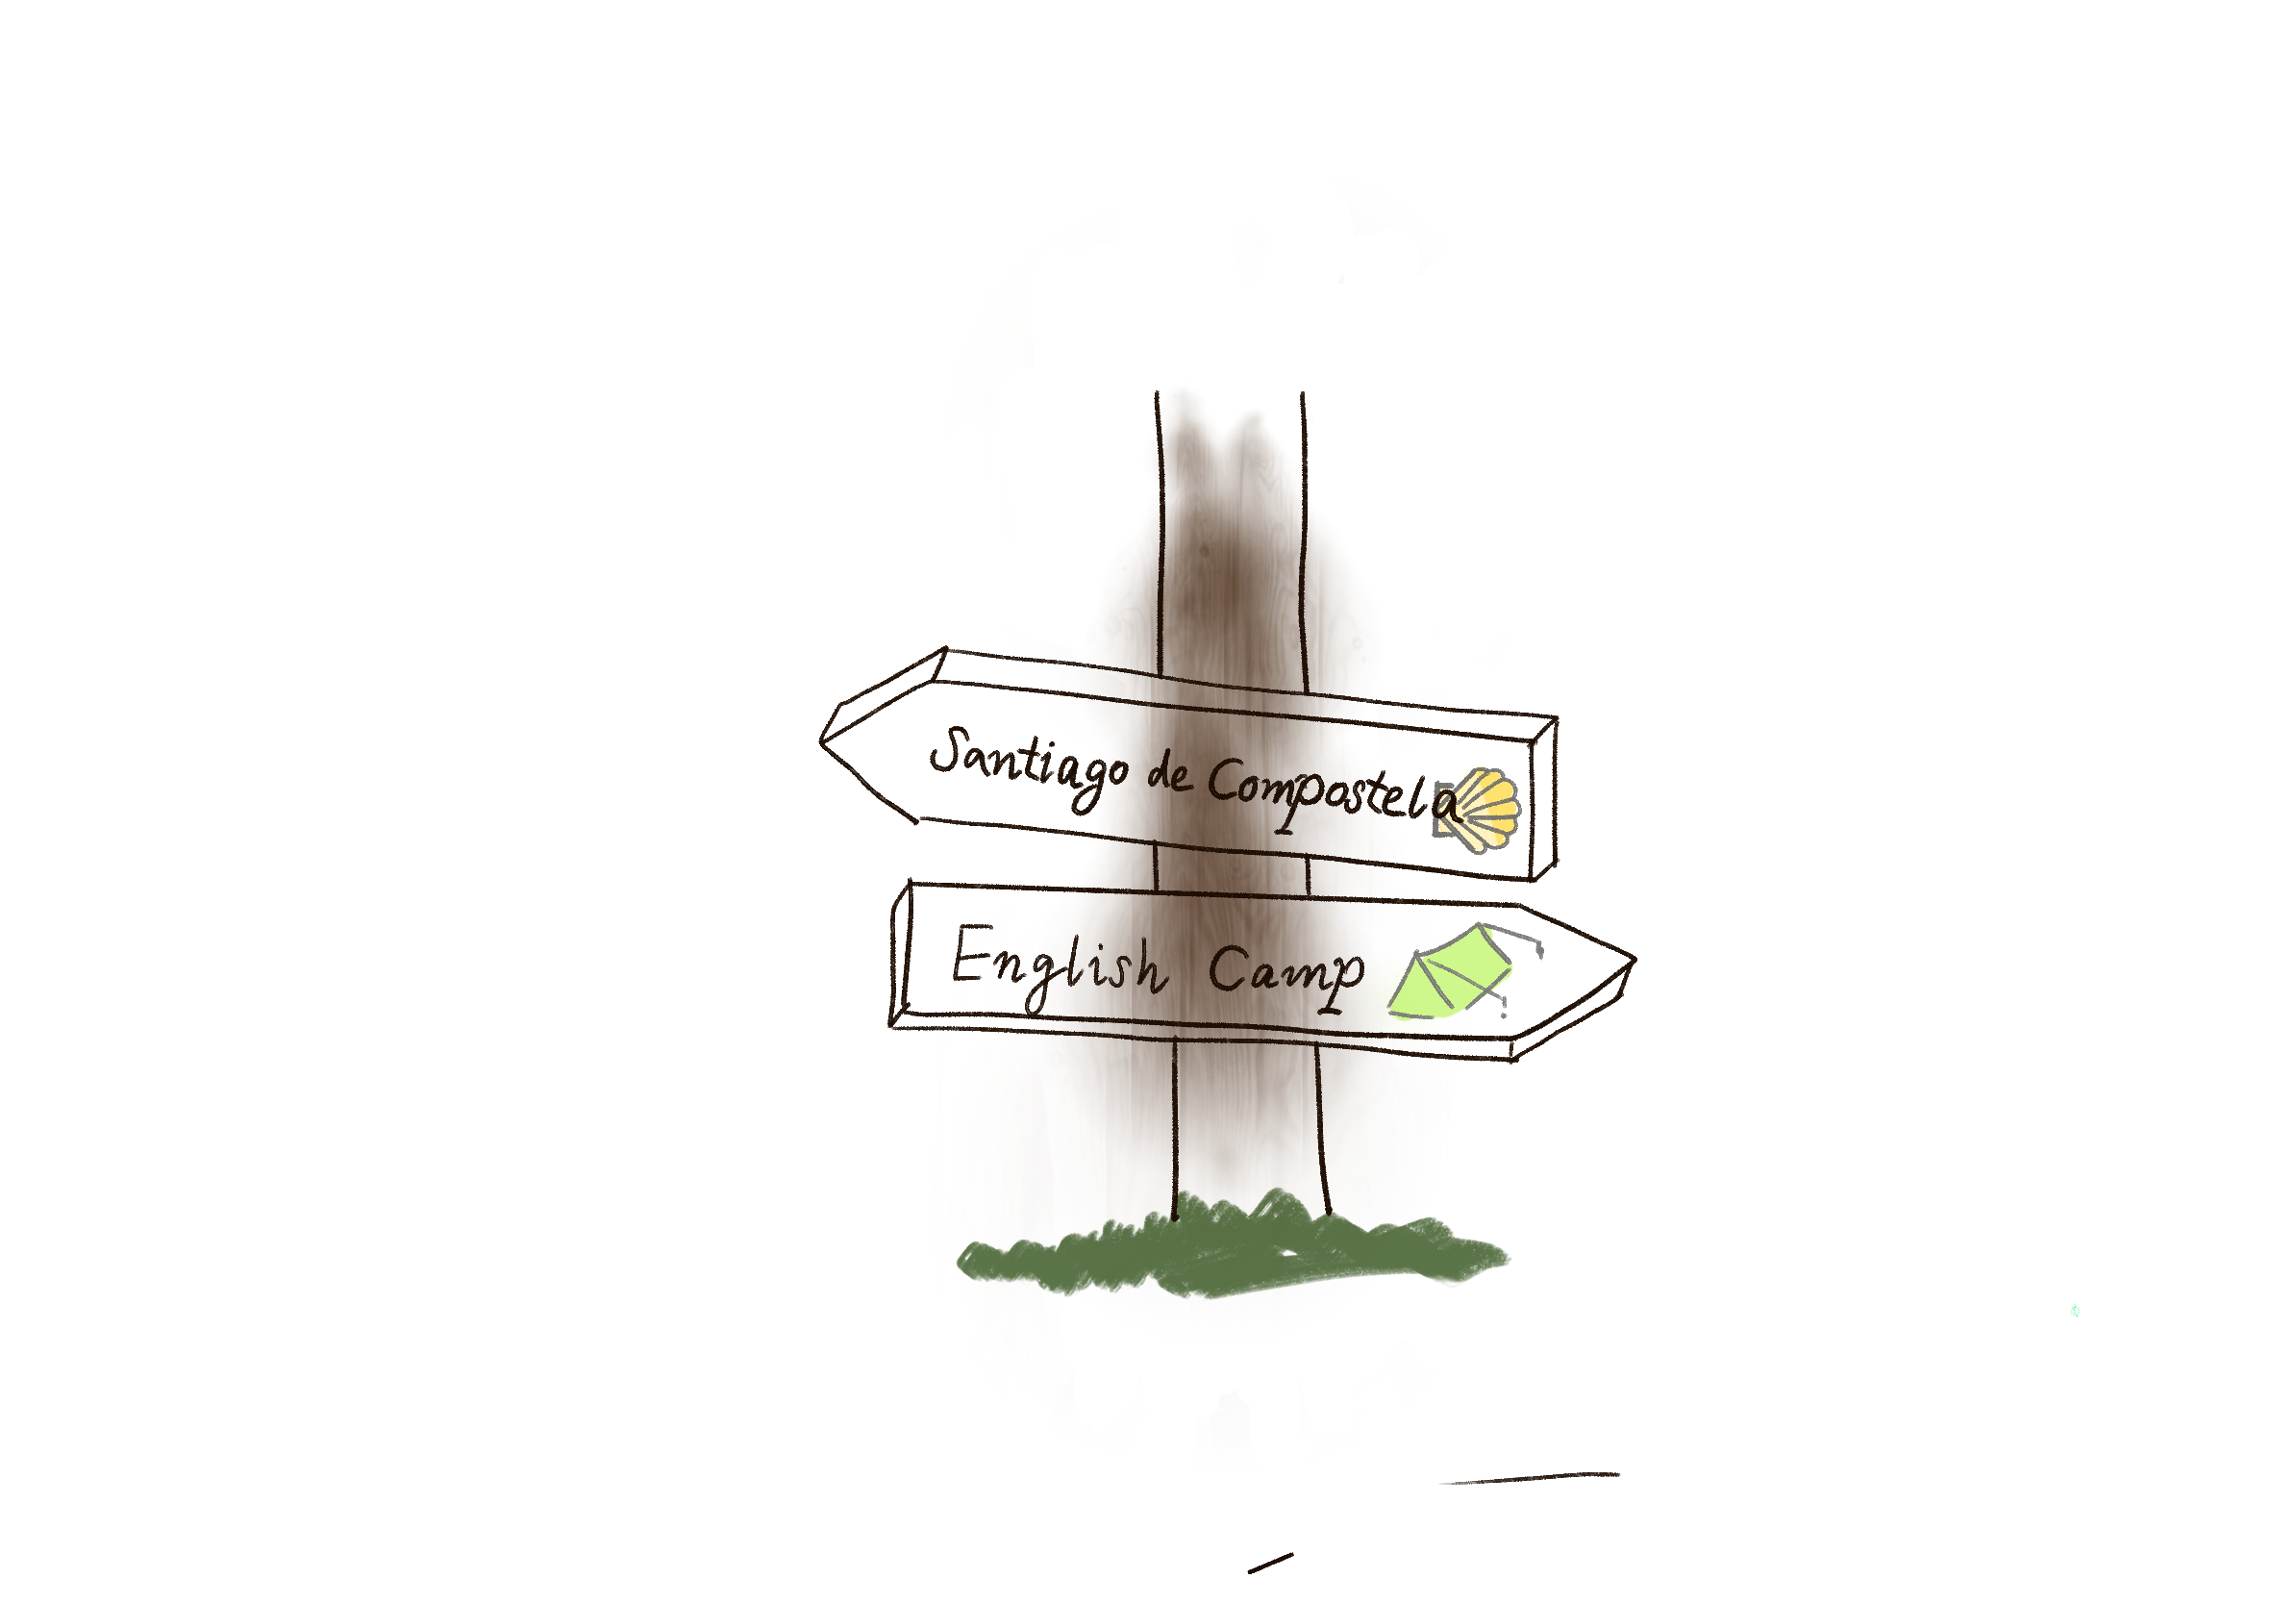 Santiago de Compostela
English Camp